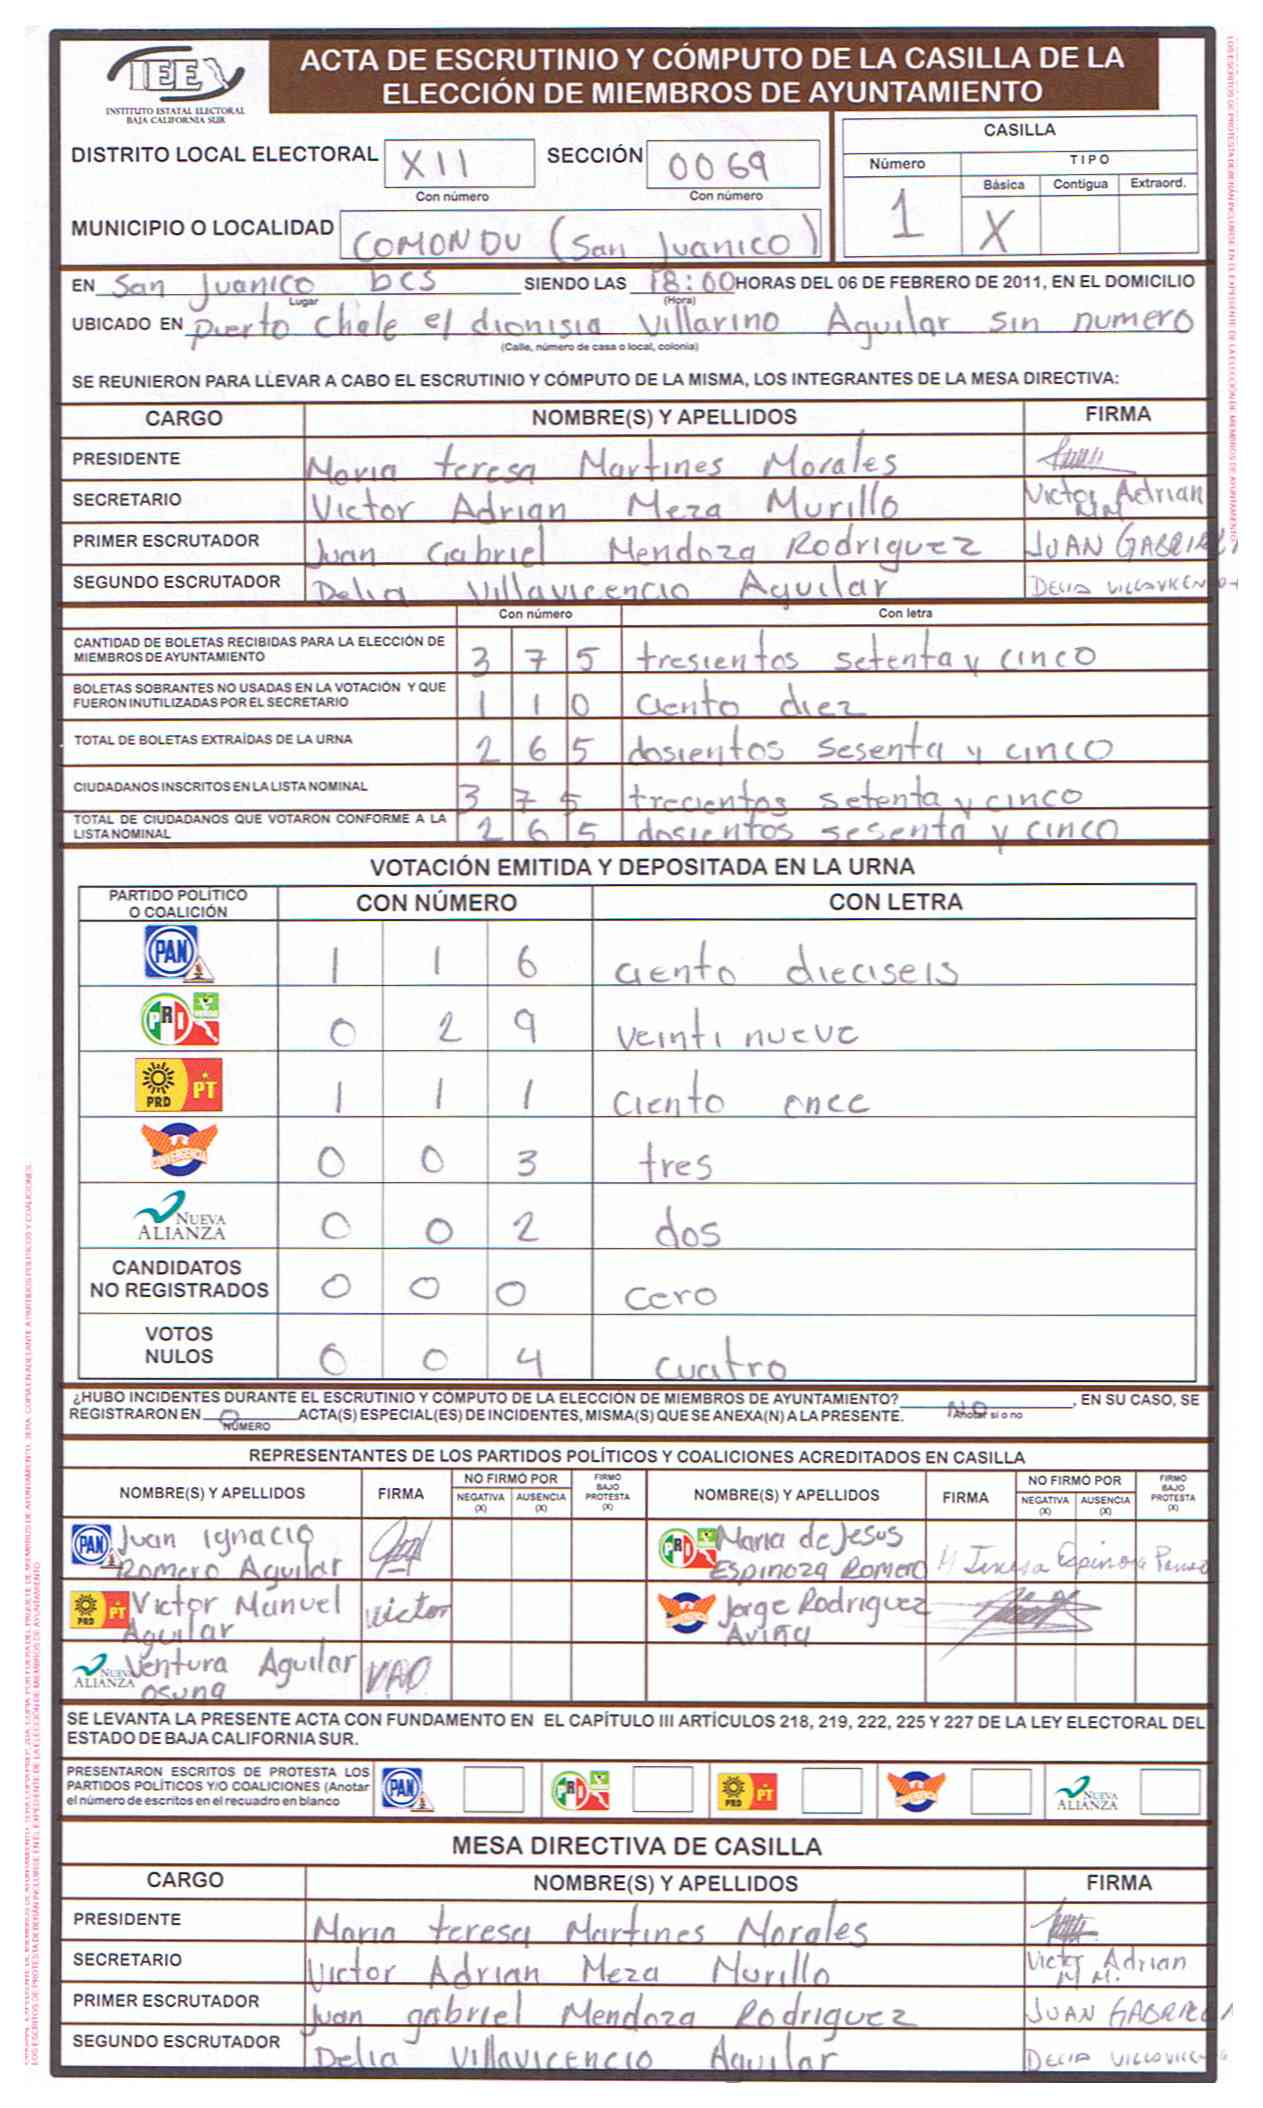 IEE
INSTITUTO ESTATAL ELECTORAL
BAJA CALIFORNIA SUR
ACTA DE ESCRUTINIO Y CÓMPUTO DE LA CASILLA DE LA
ELECCIÓN DE MIEMBROS DE AYUNTAMIENTO
DISTRITO LOCAL ELECTORAL XII SECCIÓN 0069
Con número Con número
MUNICIPIO O LOCALIDAD COMONDU (San Juanico)
CASILLA
Número TIPO
Básica Contigua Extraord.
1 X
EN San Juanico bcs SIENDO LAS 18:00 HORAS DEL 06 DE FEBRERO DE 2011, EN EL DOMICILIO
Lugar (Hora)
UBICADO EN puerto Chale el dionisia Villarino Aguilar sin numero
(Calle, número de casa o local, colonia)
SE REUNIERON PARA LLEVAR A CABO EL ESCRUTINIO Y CÓMPUTO DE LA MISMA, LOS INTEGRANTES DE LA MESA DIRECTIVA:
CARGO NOMBRE(S) Y APELLIDOS FIRMA
PRESIDENTE Maria teresa Martines Morales
SECRETARIO Victor Adrian Meza Murillo Victor Adrian MM
PRIMER ESCRUTADOR Juan Gabriel Mendoza Rodriguez JUAN GABRIEL
SEGUNDO ESCRUTADOR Delia Villavicencio Aguilar DELIA
Con número Con letra
CANTIDAD DE BOLETAS RECIBIDAS PARA LA ELECCIÓN DE
MIEMBROS DE AYUNTAMIENTO 3 7 5 tresientos setenta y cinco
BOLETAS SOBRANTES NO USADAS EN LA VOTACIÓN Y QUE
FUERON INUTILIZADAS POR EL SECRETARIO 1 1 0 ciento diez
TOTAL DE BOLETAS EXTRAÍDAS DE LA URNA 2 6 5 dosientos sesenta y cinco
CIUDADANOS INSCRITOS EN LA LISTA NOMINAL 3 7 5 trecientos setenta y cinco
TOTAL DE CIUDADANOS QUE VOTARON CONFORME A LA
LISTA NOMINAL 2 6 5 dosientos sesenta y cinco
VOTACIÓN EMITIDA Y DEPOSITADA EN LA URNA
PARTIDO POLÍTICO
O COALICIÓN CON NÚMERO CON LETRA
PAN 1 1 6 ciento dieciseis
PRI VERDE 0 2 9 veinti nueve
PRD PT 1 1 1 ciento once
CONVERGENCIA 0 0 3 tres
NUEVA ALIANZA 0 0 2 dos
CANDIDATOS
NO REGISTRADOS 0 0 0 cero
VOTOS
NULOS 0 0 4 cuatro
¿HUBO INCIDENTES DURANTE EL ESCRUTINIO Y CÓMPUTO DE LA ELECCIÓN DE MIEMBROS DE AYUNTAMIENTO? NO, EN SU CASO, SE
Anotar si o no
REGISTRARON EN 0 ACTA(S) ESPECIAL(ES) DE INCIDENTES, MISMA(S) QUE SE ANEXA(N) A LA PRESENTE.
NÚMERO
REPRESENTANTES DE LOS PARTIDOS POLÍTICOS Y COALICIONES ACREDITADOS EN CASILLA
NOMBRE(S) Y APELLIDOS FIRMA NO FIRMÓ POR NEGATIVA (X) AUSENCIA (X) FIRMÓ BAJO PROTESTA (X) NOMBRE(S) Y APELLIDOS FIRMA NO FIRMÓ POR NEGATIVA (X) AUSENCIA (X) FIRMÓ BAJO PROTESTA (X)
PAN Juan Ignacio Romero Aguilar PRI Maria de Jesus Espinoza Romero
PRD PT Victor Manuel Aguilar Victor Jorge Rodriguez Aviña
NUEVA ALIANZA Ventura Aguilar osuna VAO
SE LEVANTA LA PRESENTE ACTA CON FUNDAMENTO EN EL CAPÍTULO III ARTÍCULOS 218, 219, 222, 225 Y 227 DE LA LEY ELECTORAL DEL
ESTADO DE BAJA CALIFORNIA SUR.
PRESENTARON ESCRITOS DE PROTESTA LOS
PARTIDOS POLÍTICOS Y/O COALICIONES (Anotar
el número de escritos en el recuadro en blanco
PAN PRI PRD PT NUEVA ALIANZA
MESA DIRECTIVA DE CASILLA
CARGO NOMBRE(S) Y APELLIDOS FIRMA
PRESIDENTE Maria teresa Martines Morales
SECRETARIO Victor Adrian Meza Murillo Victor Adrian M M.
PRIMER ESCRUTADOR Juan gabriel Mendoza Rodriguez JUAN GABRIEL
SEGUNDO ESCRUTADOR Delia Villavicencio Aguilar DELIA